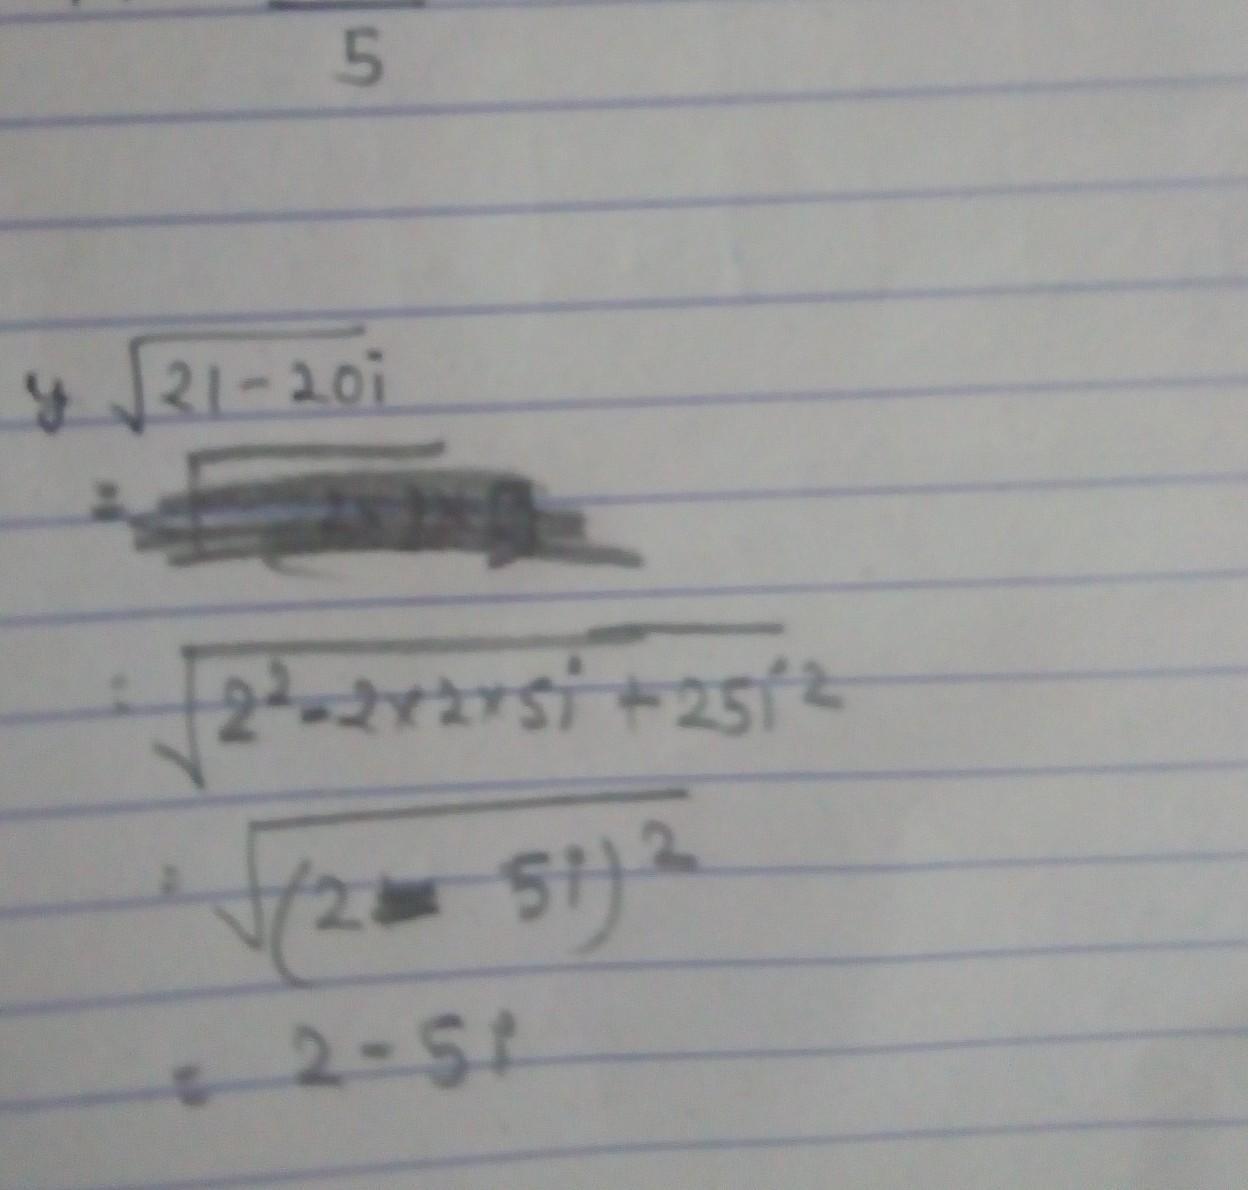 5
y √21-20i
=
= √2²-2×2×5i+25i²
= √(2-5i)²
= 2-5i